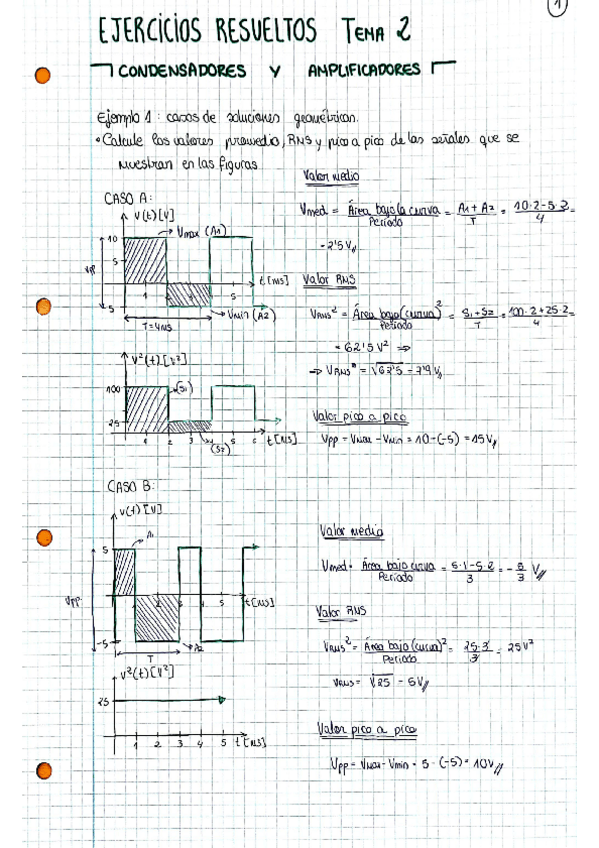 1
EJERCICIOS RESUELTOS TEMA 2
CONDENSADORES Y AMPLIFICADORES
Ejemplo 1: casos de soluciones geométricas.
• Calcule los valores promedio, RMS y pico a pico de las señales que se
muestran en las figuras.
Valor medio
CASO A:
V(t)[V]
Vmax (A1)
10
Vpp
-5
1
5
t[ms]
T=4ms
Vmin (A2)
Vmed = Área bajo la curva / Periodo = A1 + A2 / T = 10·2-5·2 / 4 =
= 2'5 V
Valor RMS
VRMS² = Área bajo (curva)² / Periodo = S1+S2 / T = 100·2+25·2 / 4 =
= 62'5 V² ⇒
⇒ VRMS = √62'5 = 7'9 V
V²(t)[V²]
100
(S1)
25
1 2 3 5 6 t[ms]
(S2)
Valor pico a pico
Vpp = Vmax - Vmin = 10-(-5) = 15V
CASO B:
V(t)[V]
A1
5
Vpp
-5
5
t[ms]
T
A2
Valor medio
Vmed = Área bajo curva / Periodo = 5·1-5·2 / 3 = - 5/3 V
Valor RMS
VRMS² = Área bajo (curva)² / Periodo = 25·3 / 3 = 25V²
VRMS = √25 = 5V
V²(t)[V²]
25
1 2 3 4 5 t[ms]
Valor pico a pico
Vpp = Vmax - Vmin = 5 - (-5) = 10V